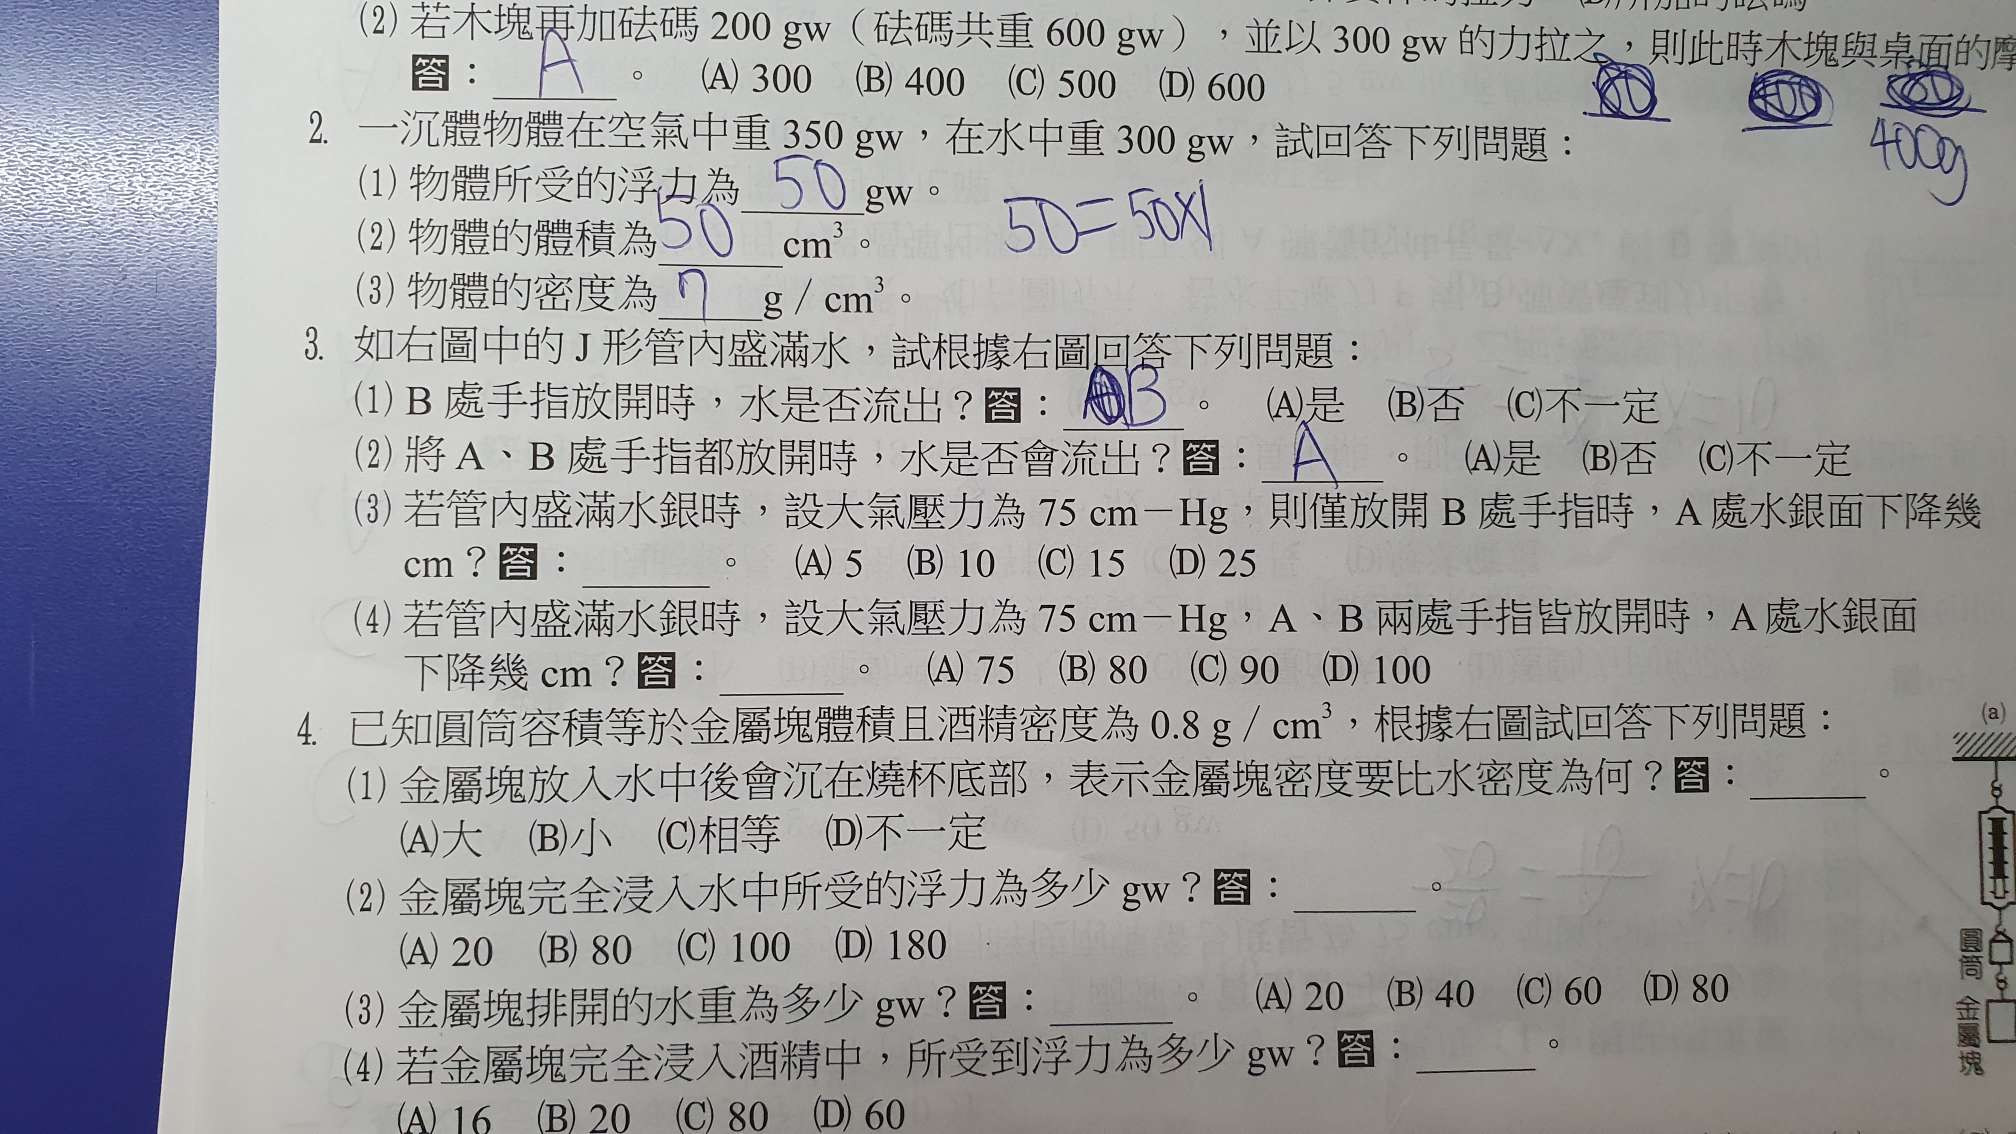 (2) 若木塊再加砝碼 200 gw（砝碼共重 600 gw），並以 300 gw 的力拉之，則此時木塊與桌面的摩
答：A。 (A) 300 (B) 400 (C) 500 (D) 600
400g
2. 一沉體物體在空氣中重 350 gw，在水中重 300 gw，試回答下列問題：
(1) 物體所受的浮力為 50 gw。
50=50×1
(2) 物體的體積為 50 cm³。
(3) 物體的密度為 7 g／cm³。
3. 如右圖中的 J 形管內盛滿水，試根據右圖回答下列問題：
(1) B 處手指放開時，水是否流出？答：B。 (A)是 (B)否 (C)不一定
(2) 將 A、B 處手指都放開時，水是否會流出？答：A。 (A)是 (B)否 (C)不一定
(3) 若管內盛滿水銀時，設大氣壓力為 75 cm－Hg，則僅放開 B 處手指時，A 處水銀面下降幾
cm？答：＿＿＿。 (A) 5 (B) 10 (C) 15 (D) 25
(4) 若管內盛滿水銀時，設大氣壓力為 75 cm－Hg，A、B 兩處手指皆放開時，A 處水銀面
下降幾 cm？答：＿＿＿。 (A) 75 (B) 80 (C) 90 (D) 100
4. 已知圓筒容積等於金屬塊體積且酒精密度為 0.8 g／cm³，根據右圖試回答下列問題：
(a)
(1) 金屬塊放入水中後會沉在燒杯底部，表示金屬塊密度要比水密度為何？答：＿＿＿。
(A)大 (B)小 (C)相等 (D)不一定
(2) 金屬塊完全浸入水中所受的浮力為多少 gw？答：＿＿＿。
(A) 20 (B) 80 (C) 100 (D) 180
圓筒
(3) 金屬塊排開的水重為多少 gw？答：＿＿＿。 (A) 20 (B) 40 (C) 60 (D) 80
金屬塊
(4) 若金屬塊完全浸入酒精中，所受到浮力為多少 gw？答：＿＿＿。
(A) 16 (B) 20 (C) 80 (D) 60